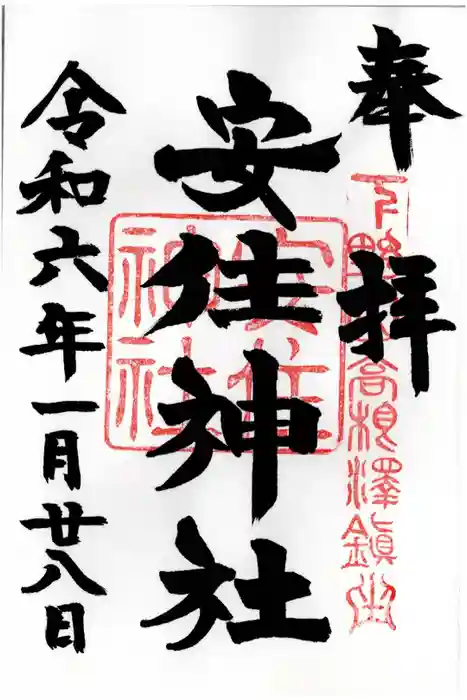 奉拝
下野 高根澤鎮守
安住神社
安住神社
令和六年一月廿八日